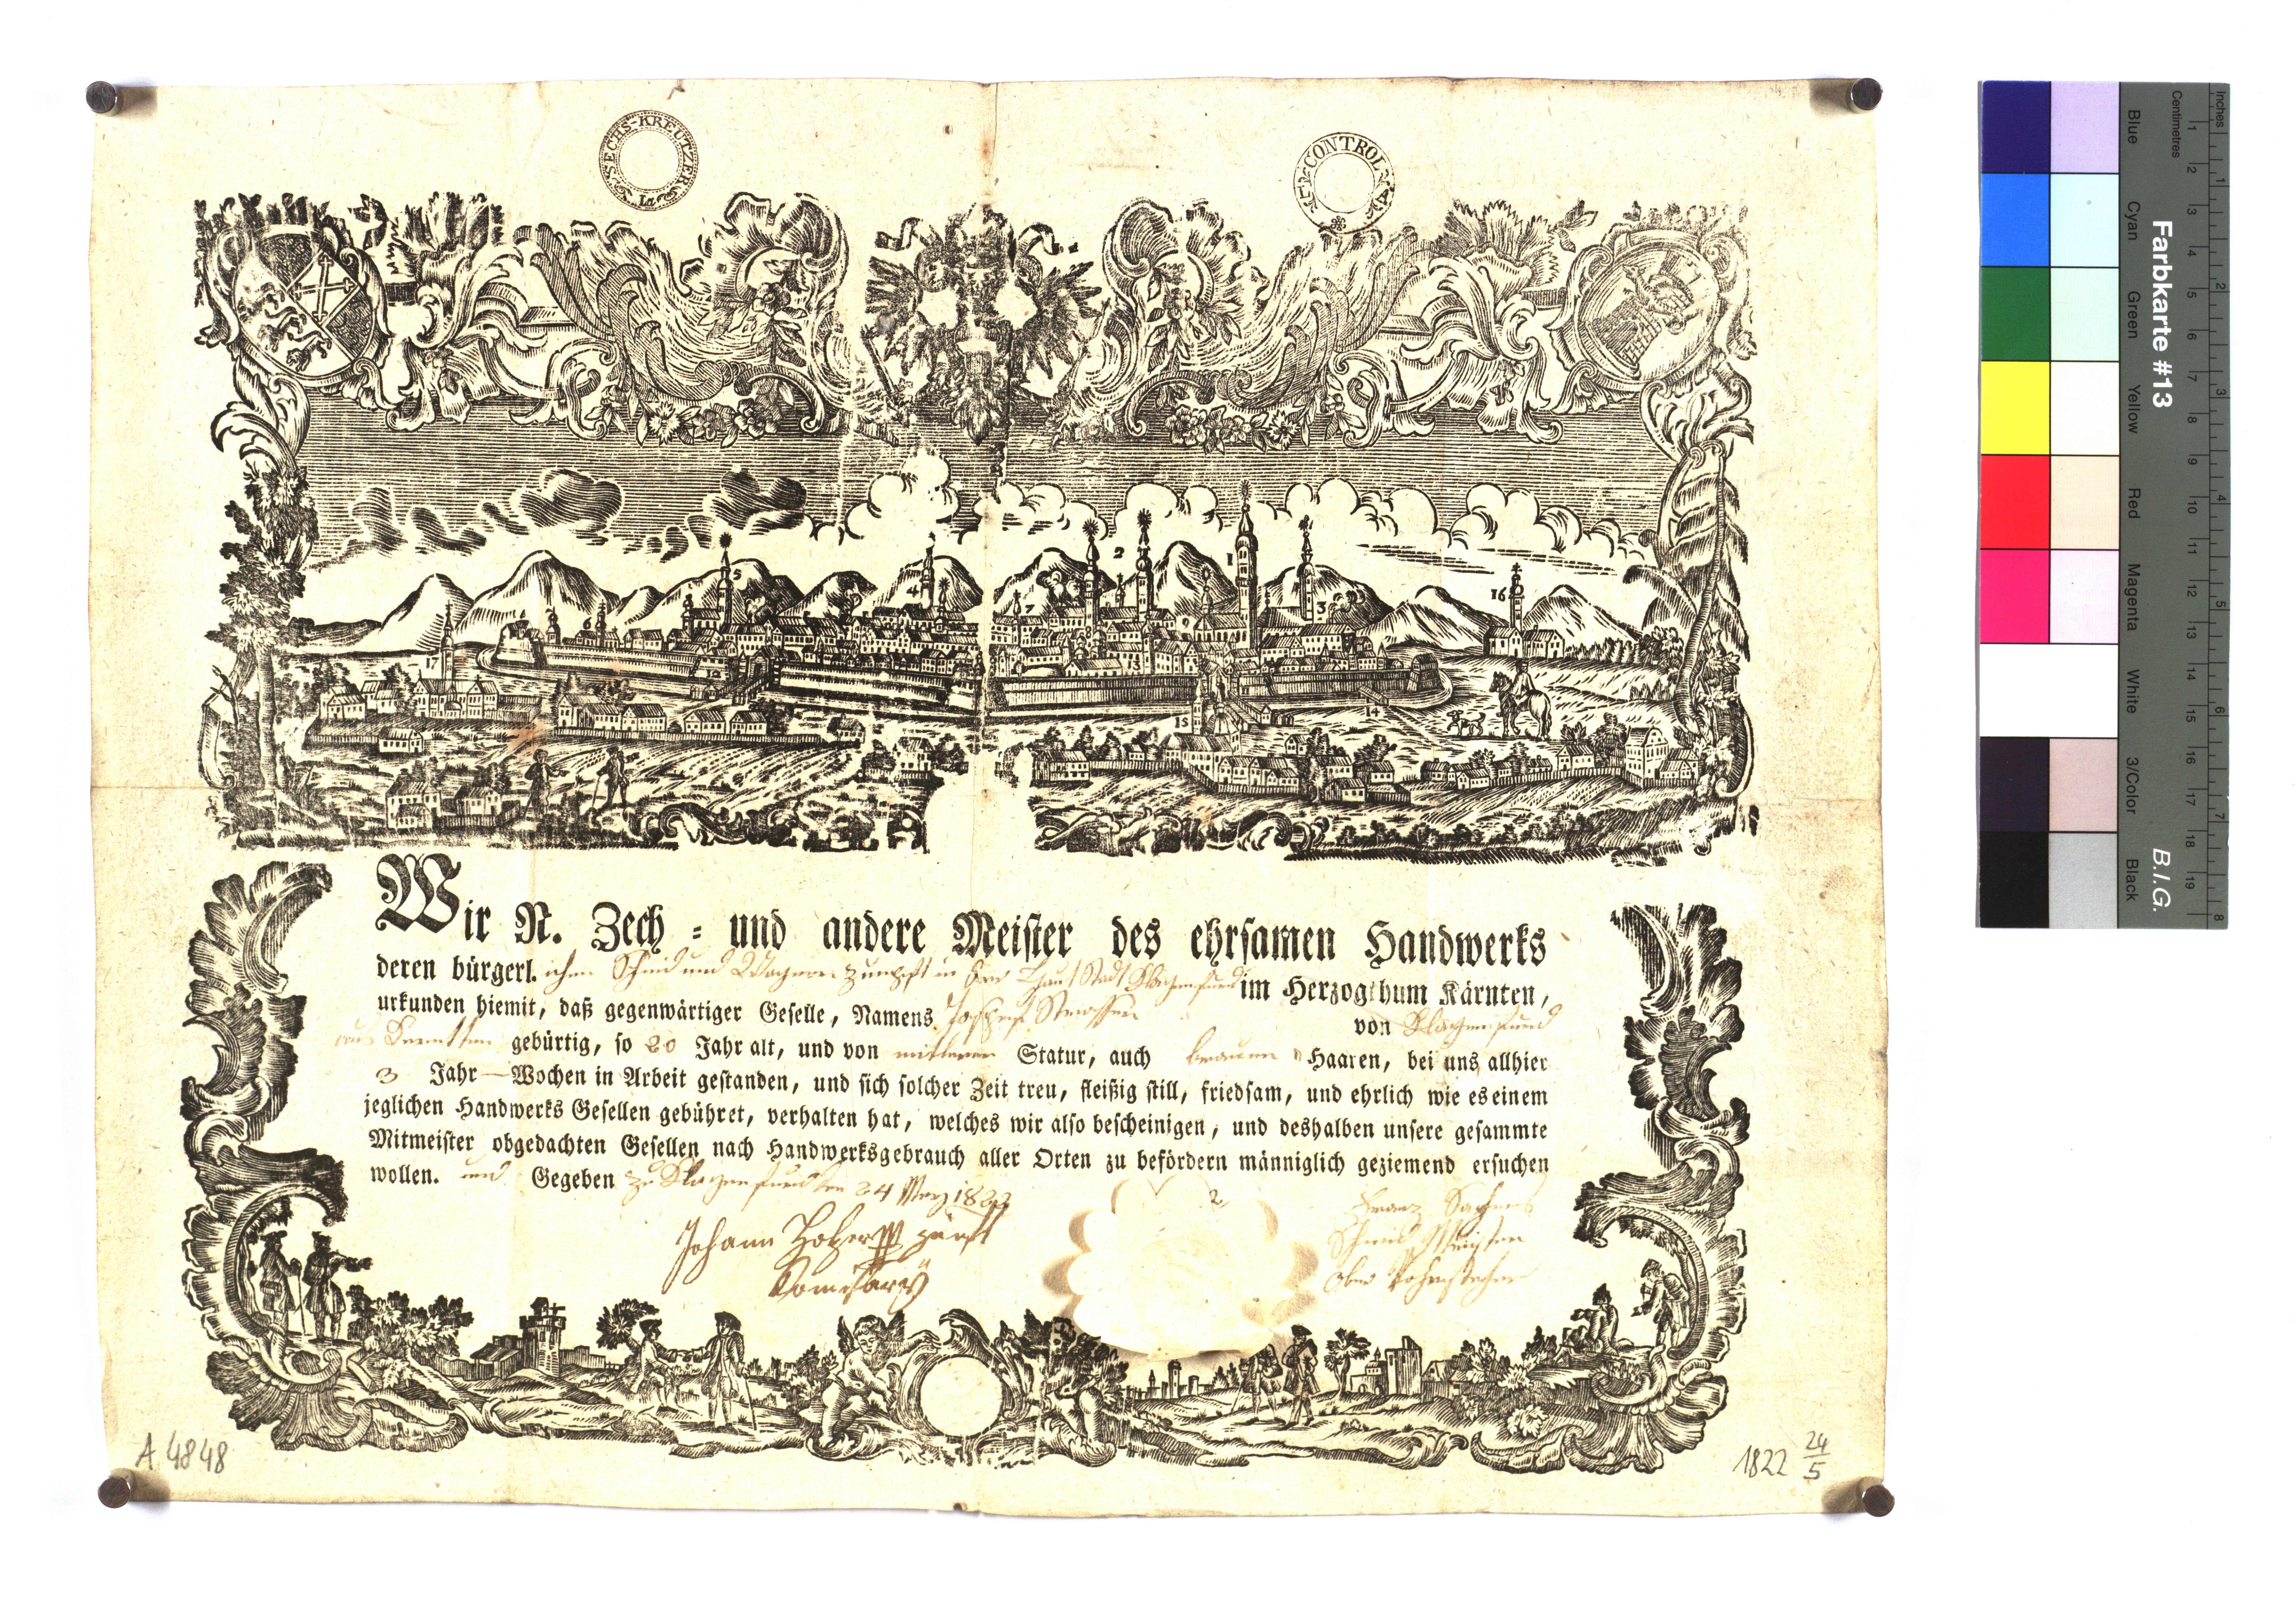 SECHS-KREUTZER
CONTROL
1
2
3
4
5
6
7
12
13
14
15
16
17
Wir N. Zech = und andere Meister des ehrsamen Handwerks
deren bürgerl.ichen Schmid und Wagner Zunpft in der Haubt Stadt Klagenfurd im Herzogthum Kärnten,
urkunden hiemit, daß gegenwärtiger Geselle, Namens Joseph Strasser von Klagenfurd
aus gebürtig, so 20 Jahr alt, und von mitterer Statur, auch braunen Haaren, bei uns allhier
3 Jahr — Wochen in Arbeit gestanden, und sich solcher Zeit treu, fleißig still, friedsam, und ehrlich wie es einem
jeglichen Handwerks Gesellen gebühret, verhalten hat, welches wir also bescheinigen, und deshalben unsere gesammte
Mitmeister obgedachten Gesellen nach Handwerksgebrauch aller Orten zu befördern männiglich geziemend ersuchen
wollen. und Gegeben zu Klagenfurd den 24 1822
Johann Holzer
Comißary
Franz
Schmid Meister
A 4848
1822 24/5
Farbkarte #13
B.I.G.
Inches
Centimetres
Blue
Cyan
Green
Yellow
Red
Magenta
White
3/Color
Black
1 2 3 4 5 6 7 8 9 10 11 12 13 14 15 16 17 18 19
1 2 3 4 5 6 7 8